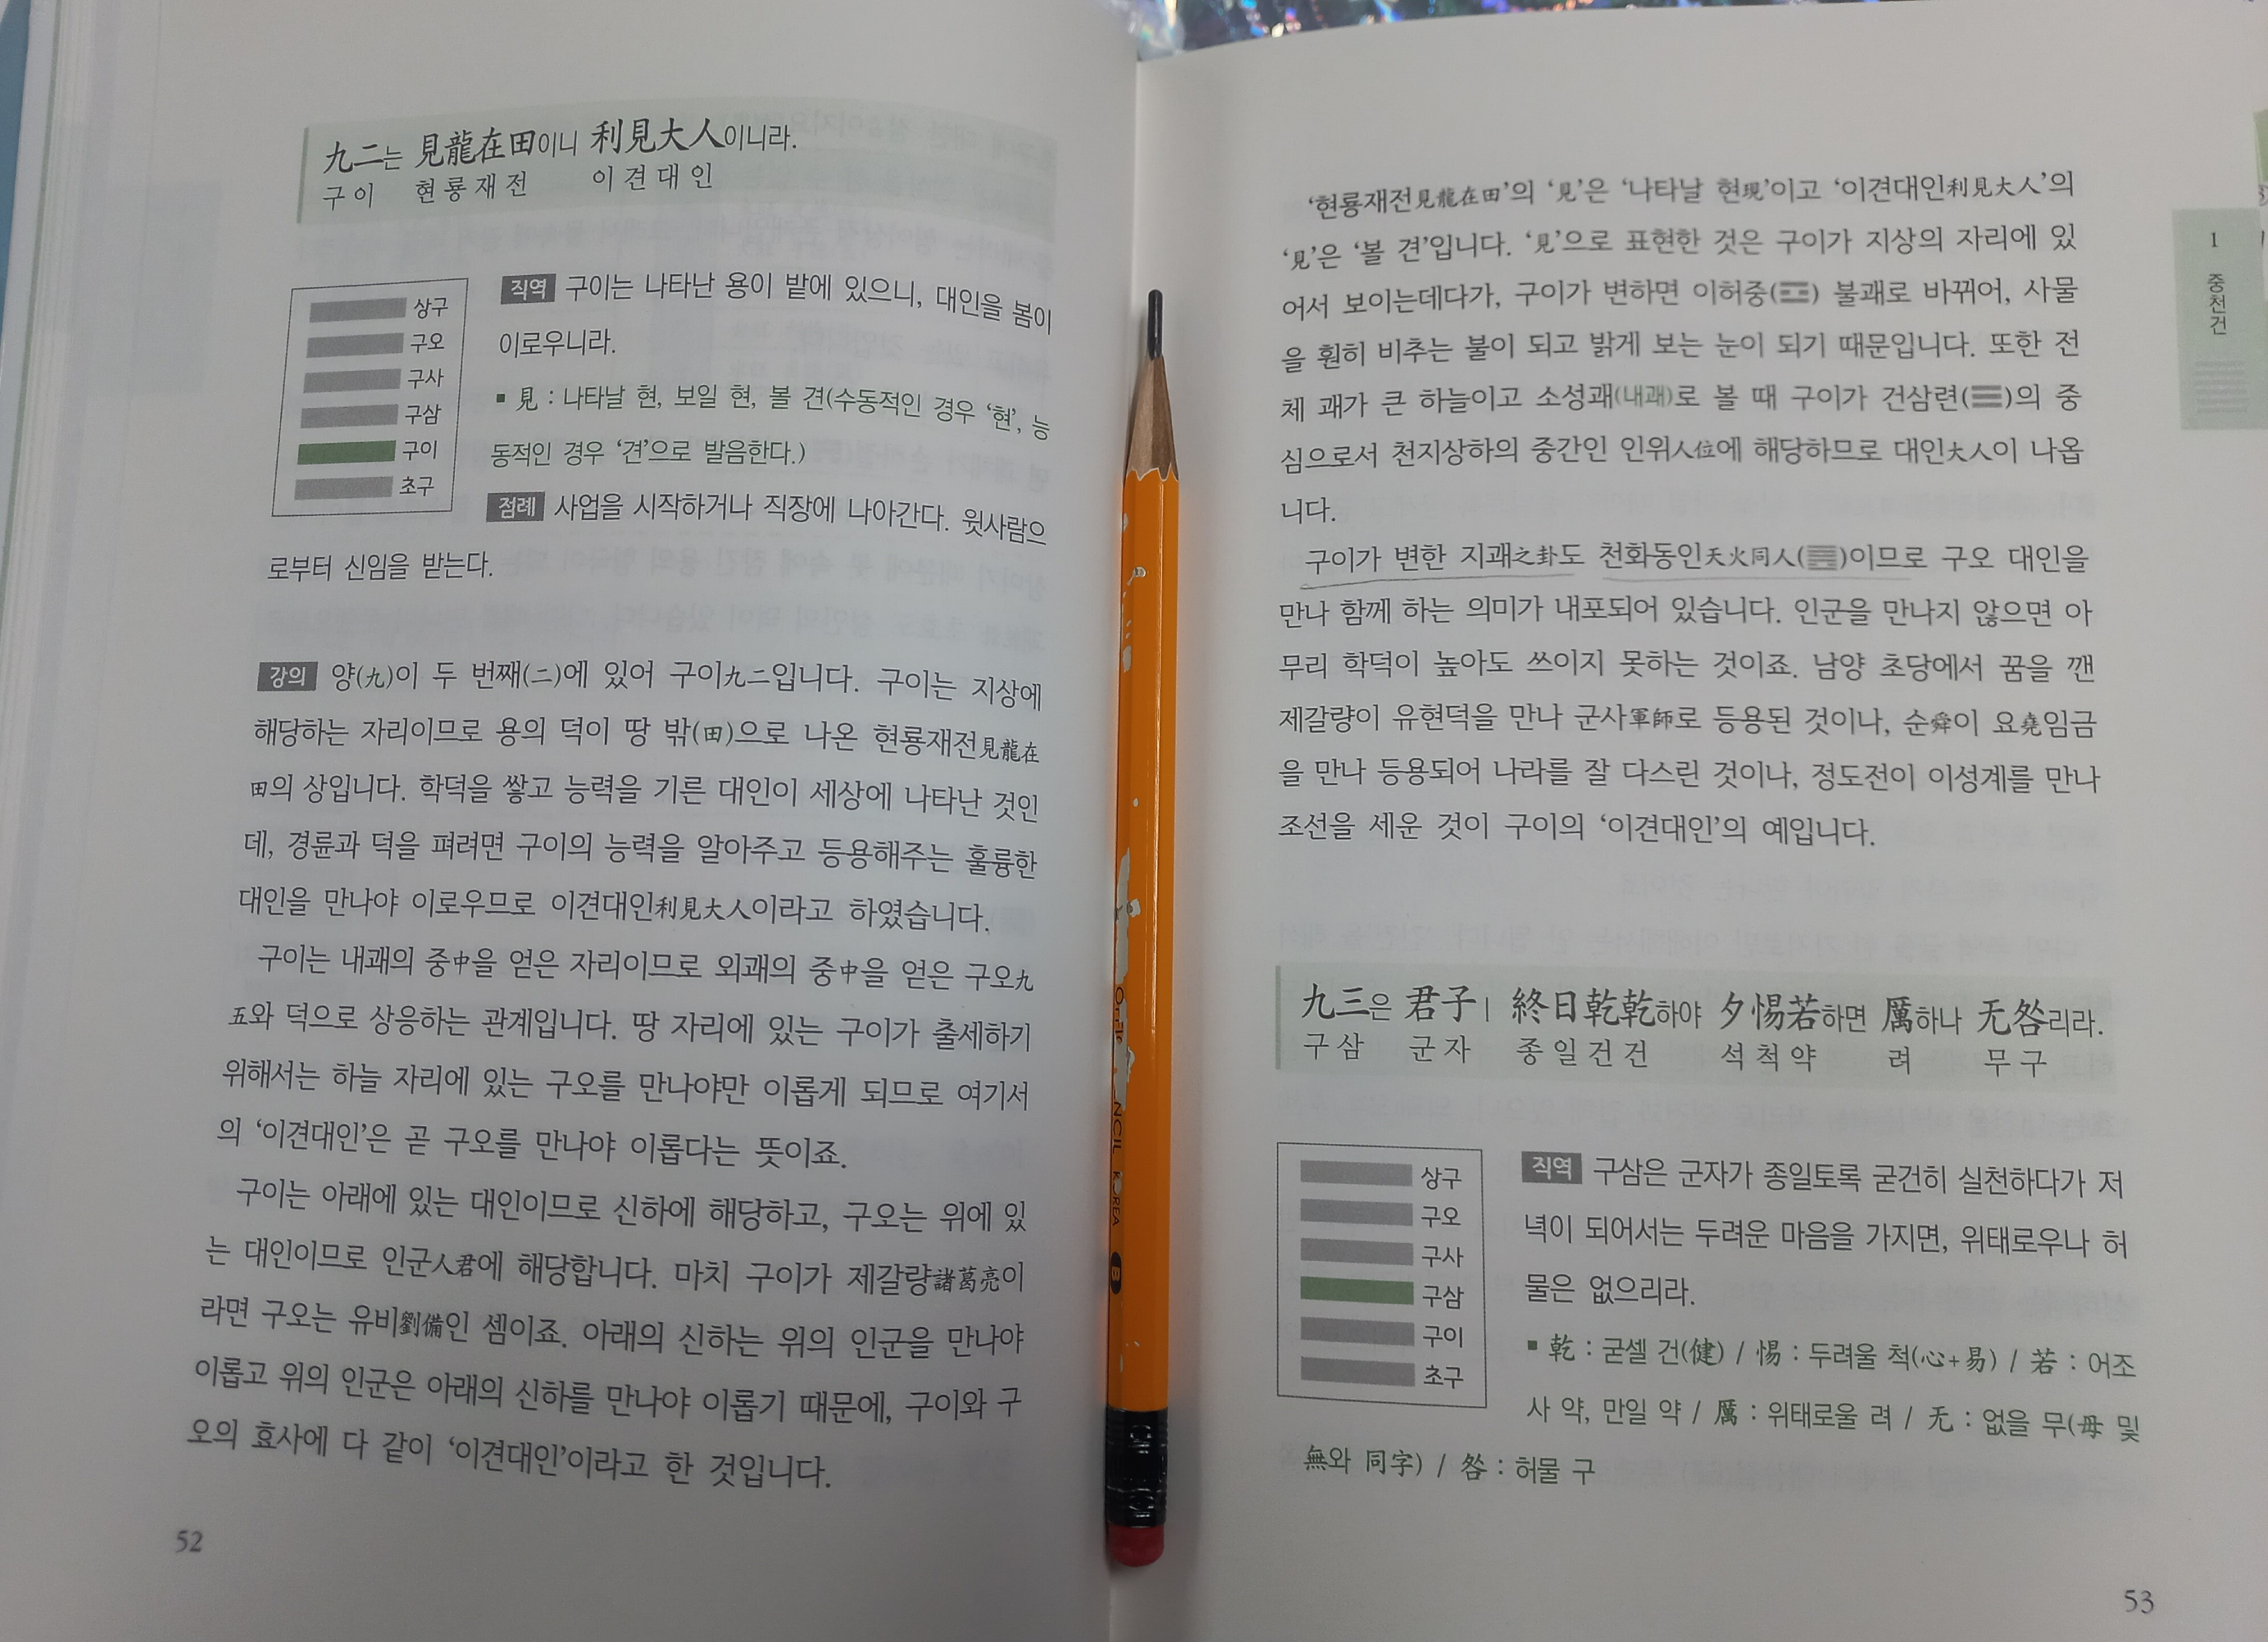 九二는 見龍在田이니 利見大人이니라.
구이 현룡재전 이견대인
상구
구오
구사
구삼
구이
초구
직역 구이는 나타난 용이 밭에 있으니, 대인을 봄이
이로우니라.
▪ 見 : 나타날 현, 보일 현, 볼 견(수동적인 경우 ‘현’, 능
동적인 경우 ‘견’으로 발음한다.)
점례 사업을 시작하거나 직장에 나아간다. 윗사람으
로부터 신임을 받는다.
강의 양(九)이 두 번째(二)에 있어 구이九二입니다. 구이는 지상에
해당하는 자리이므로 용의 덕이 땅 밖(田)으로 나온 현룡재전見龍在
田의 상입니다. 학덕을 쌓고 능력을 기른 대인이 세상에 나타난 것인
데, 경륜과 덕을 펴려면 구이의 능력을 알아주고 등용해주는 훌륭한
대인을 만나야 이로우므로 이견대인利見大人이라고 하였습니다.
구이는 내괘의 중中을 얻은 자리이므로 외괘의 중中을 얻은 구오九
五와 덕으로 상응하는 관계입니다. 땅 자리에 있는 구이가 출세하기
위해서는 하늘 자리에 있는 구오를 만나야만 이롭게 되므로 여기서
의 ‘이견대인’은 곧 구오를 만나야 이롭다는 뜻이죠.
구이는 아래에 있는 대인이므로 신하에 해당하고, 구오는 위에 있
는 대인이므로 인군人君에 해당합니다. 마치 구이가 제갈량諸葛亮이
라면 구오는 유비劉備인 셈이죠. 아래의 신하는 위의 인군을 만나야
이롭고 위의 인군은 아래의 신하를 만나야 이롭기 때문에, 구이와 구
오의 효사에 다 같이 ‘이견대인’이라고 한 것입니다.
52
NCIL KOREA B
‘현룡재전見龍在田’의 ‘見’은 ‘나타날 현現’이고 ‘이견대인利見大人’의
‘見’은 ‘볼 견’입니다. ‘見’으로 표현한 것은 구이가 지상의 자리에 있
어서 보이는데다가, 구이가 변하면 이허중(☲) 불괘로 바뀌어, 사물
을 훤히 비추는 불이 되고 밝게 보는 눈이 되기 때문입니다. 또한 전
체 괘가 큰 하늘이고 소성괘(내괘)로 볼 때 구이가 건삼련(☰)의 중
심으로서 천지상하의 중간인 인위人位에 해당하므로 대인大人이 나옵
니다.
구이가 변한 지괘之卦도 천화동인天火同人(䷌)이므로 구오 대인을
만나 함께 하는 의미가 내포되어 있습니다. 인군을 만나지 않으면 아
무리 학덕이 높아도 쓰이지 못하는 것이죠. 남양 초당에서 꿈을 깬
제갈량이 유현덕을 만나 군사軍師로 등용된 것이나, 순舜이 요堯임금
을 만나 등용되어 나라를 잘 다스린 것이나, 정도전이 이성계를 만나
조선을 세운 것이 구이의 ‘이견대인’의 예입니다.
九三은 君子ㅣ 終日乾乾하야 夕惕若하면 厲하나 无咎리라.
구삼 군자 종일건건 석척약 려 무구
상구
구오
구사
구삼
구이
초구
직역 구삼은 군자가 종일토록 굳건히 실천하다가 저
녁이 되어서는 두려운 마음을 가지면, 위태로우나 허
물은 없으리라.
▪ 乾 : 굳셀 건(健) / 惕 : 두려울 척(心+易) / 若 : 어조
사 약, 만일 약 / 厲 : 위태로울 려 / 无 : 없을 무(毋 및
無와 同字) / 咎 : 허물 구
53
1
중천건